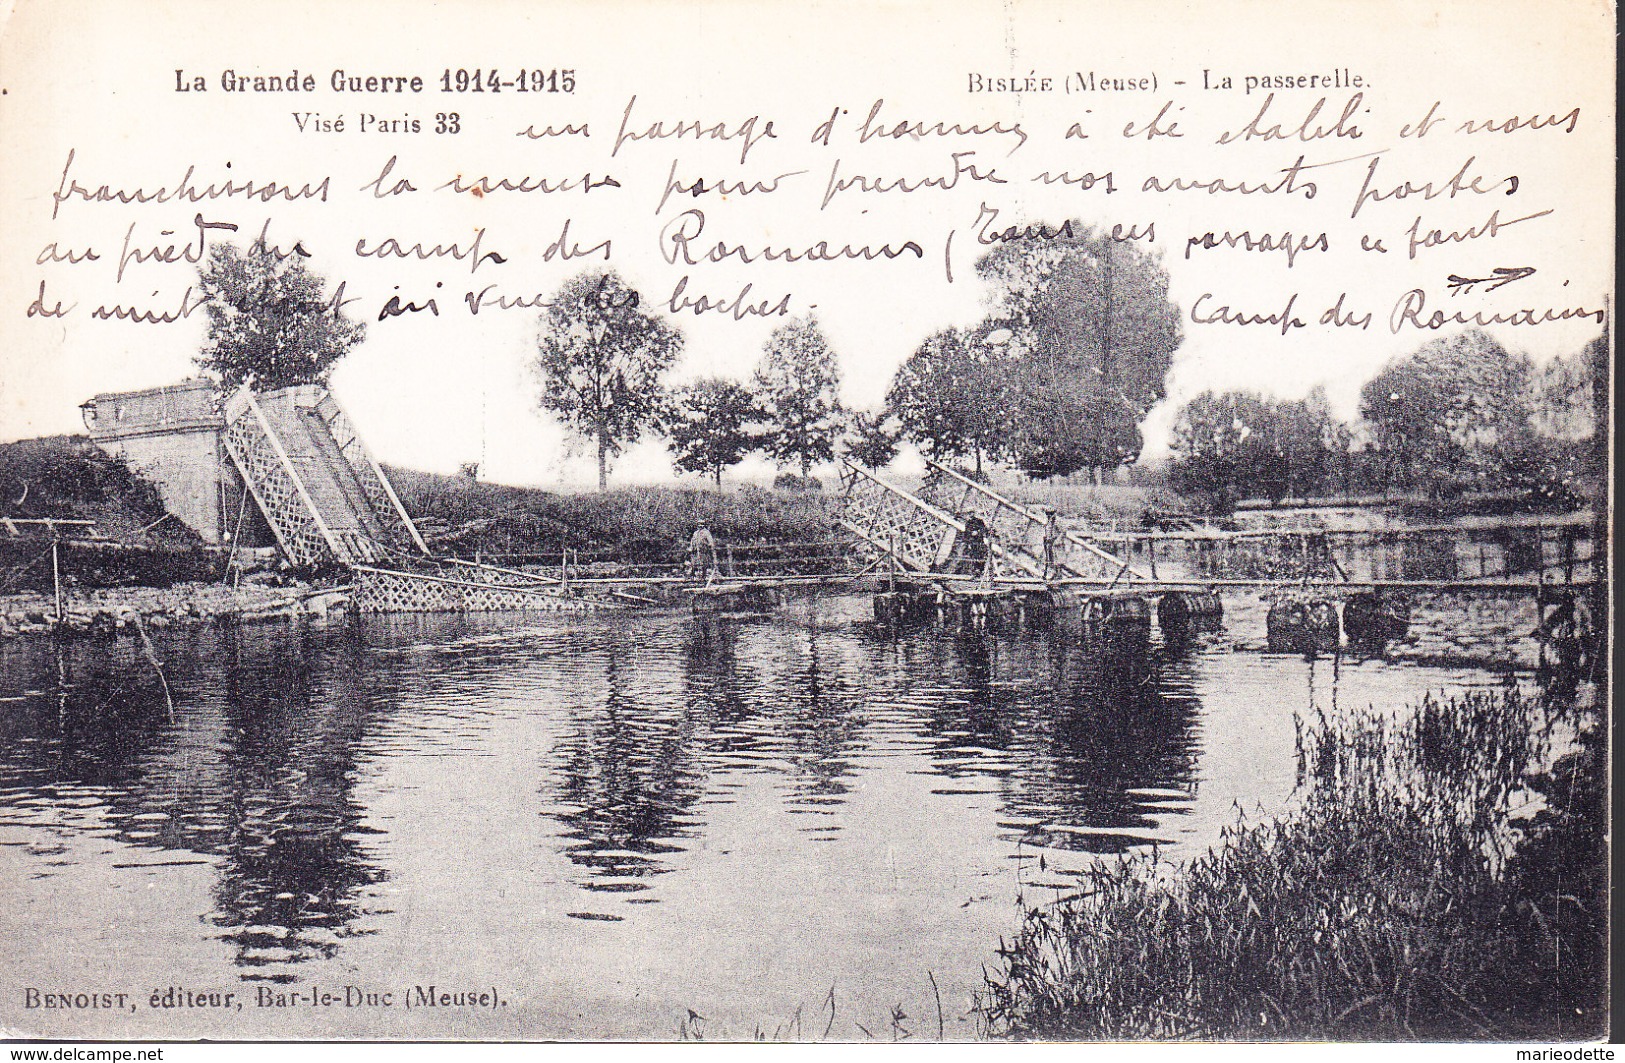 La Grande Guerre 1914-1915
Visé Paris 33
BISLÉE (Meuse) - La passerelle.
un passage d'hommes à été etabli et nous
franchissons la meuse pour prendre nos avants postes
au pièd du camp des Romains (Tous ces passages ce font
de nuit étant en vue des boches.
Camp des Romains
BENOIST, éditeur, Bar-le-Duc (Meuse).
www.delcampe.net
marieodette